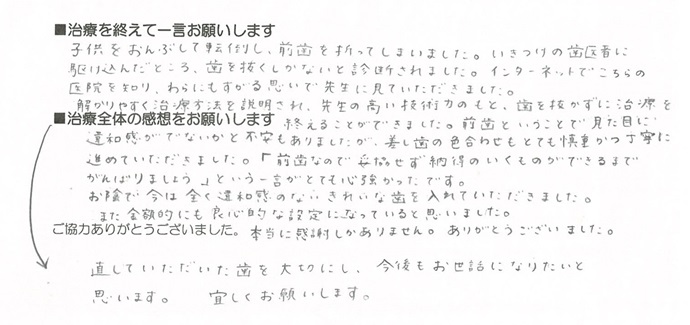 ■治療を終えて一言お願いします
子供をおんぶして転倒し、前歯を折ってしまいました。いきつけの歯医者に
駆け込んだところ、歯を抜くしかないと診断されました。インターネットでこちらの
医院を知り、わらにもすがる思いで先生に見ていただきました。
解かりやすく治療方法を説明され、先生の高い技術力のもと、歯を抜かずに治療を
■治療全体の感想をお願いします
終えることができました。前歯ということで見た目に
違和感がでないかと不安もありましたが、差し歯の色合わせもとても慎重かつ丁寧に
進めていただきました。「前歯なので妥協せず納得のいくものができるまで
がんばりましょう」という一言がとても心強かったです。
お陰で今は全く違和感のないきれいな歯を入れていただきました。
また金額的にも良心的な設定になっていると思いました。
ご協力ありがとうございました。本当に感謝しかありません。ありがとうございました。
直していただいた歯を大切にし、今後もお世話になりたいと
思います。 宜しくお願いします。